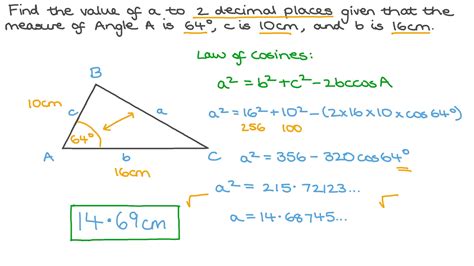 Find the value of a to 2 decimal places given that the
measure of Angle A is 64°, c is 10cm, and b is 16cm.
Law of cosines:
a² = b² + c² - 2bccosA
a² = 16² + 10² - (2x16x10xcos64°)
256 100
a² = 356 - 320cos64°
a² = 215.72123...
√ √
a = 14.68745...
14.69cm
B
10cm c a
64°
A b C
16cm